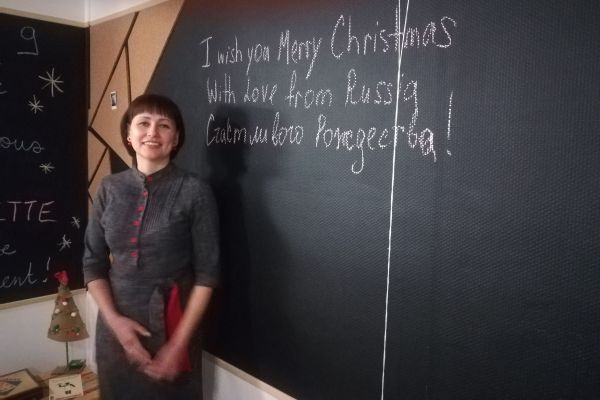 9
ous
ITTE
e
ent!
I wish you Merry Christmas
With Love from Russia
Счастливого Рождества!